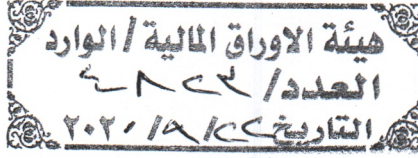 هيئة الاوراق المالية / الوارد
العدد/ ٤٨٢٣
التاريخ ٢٢/ ٩/ ٢٠٢٠